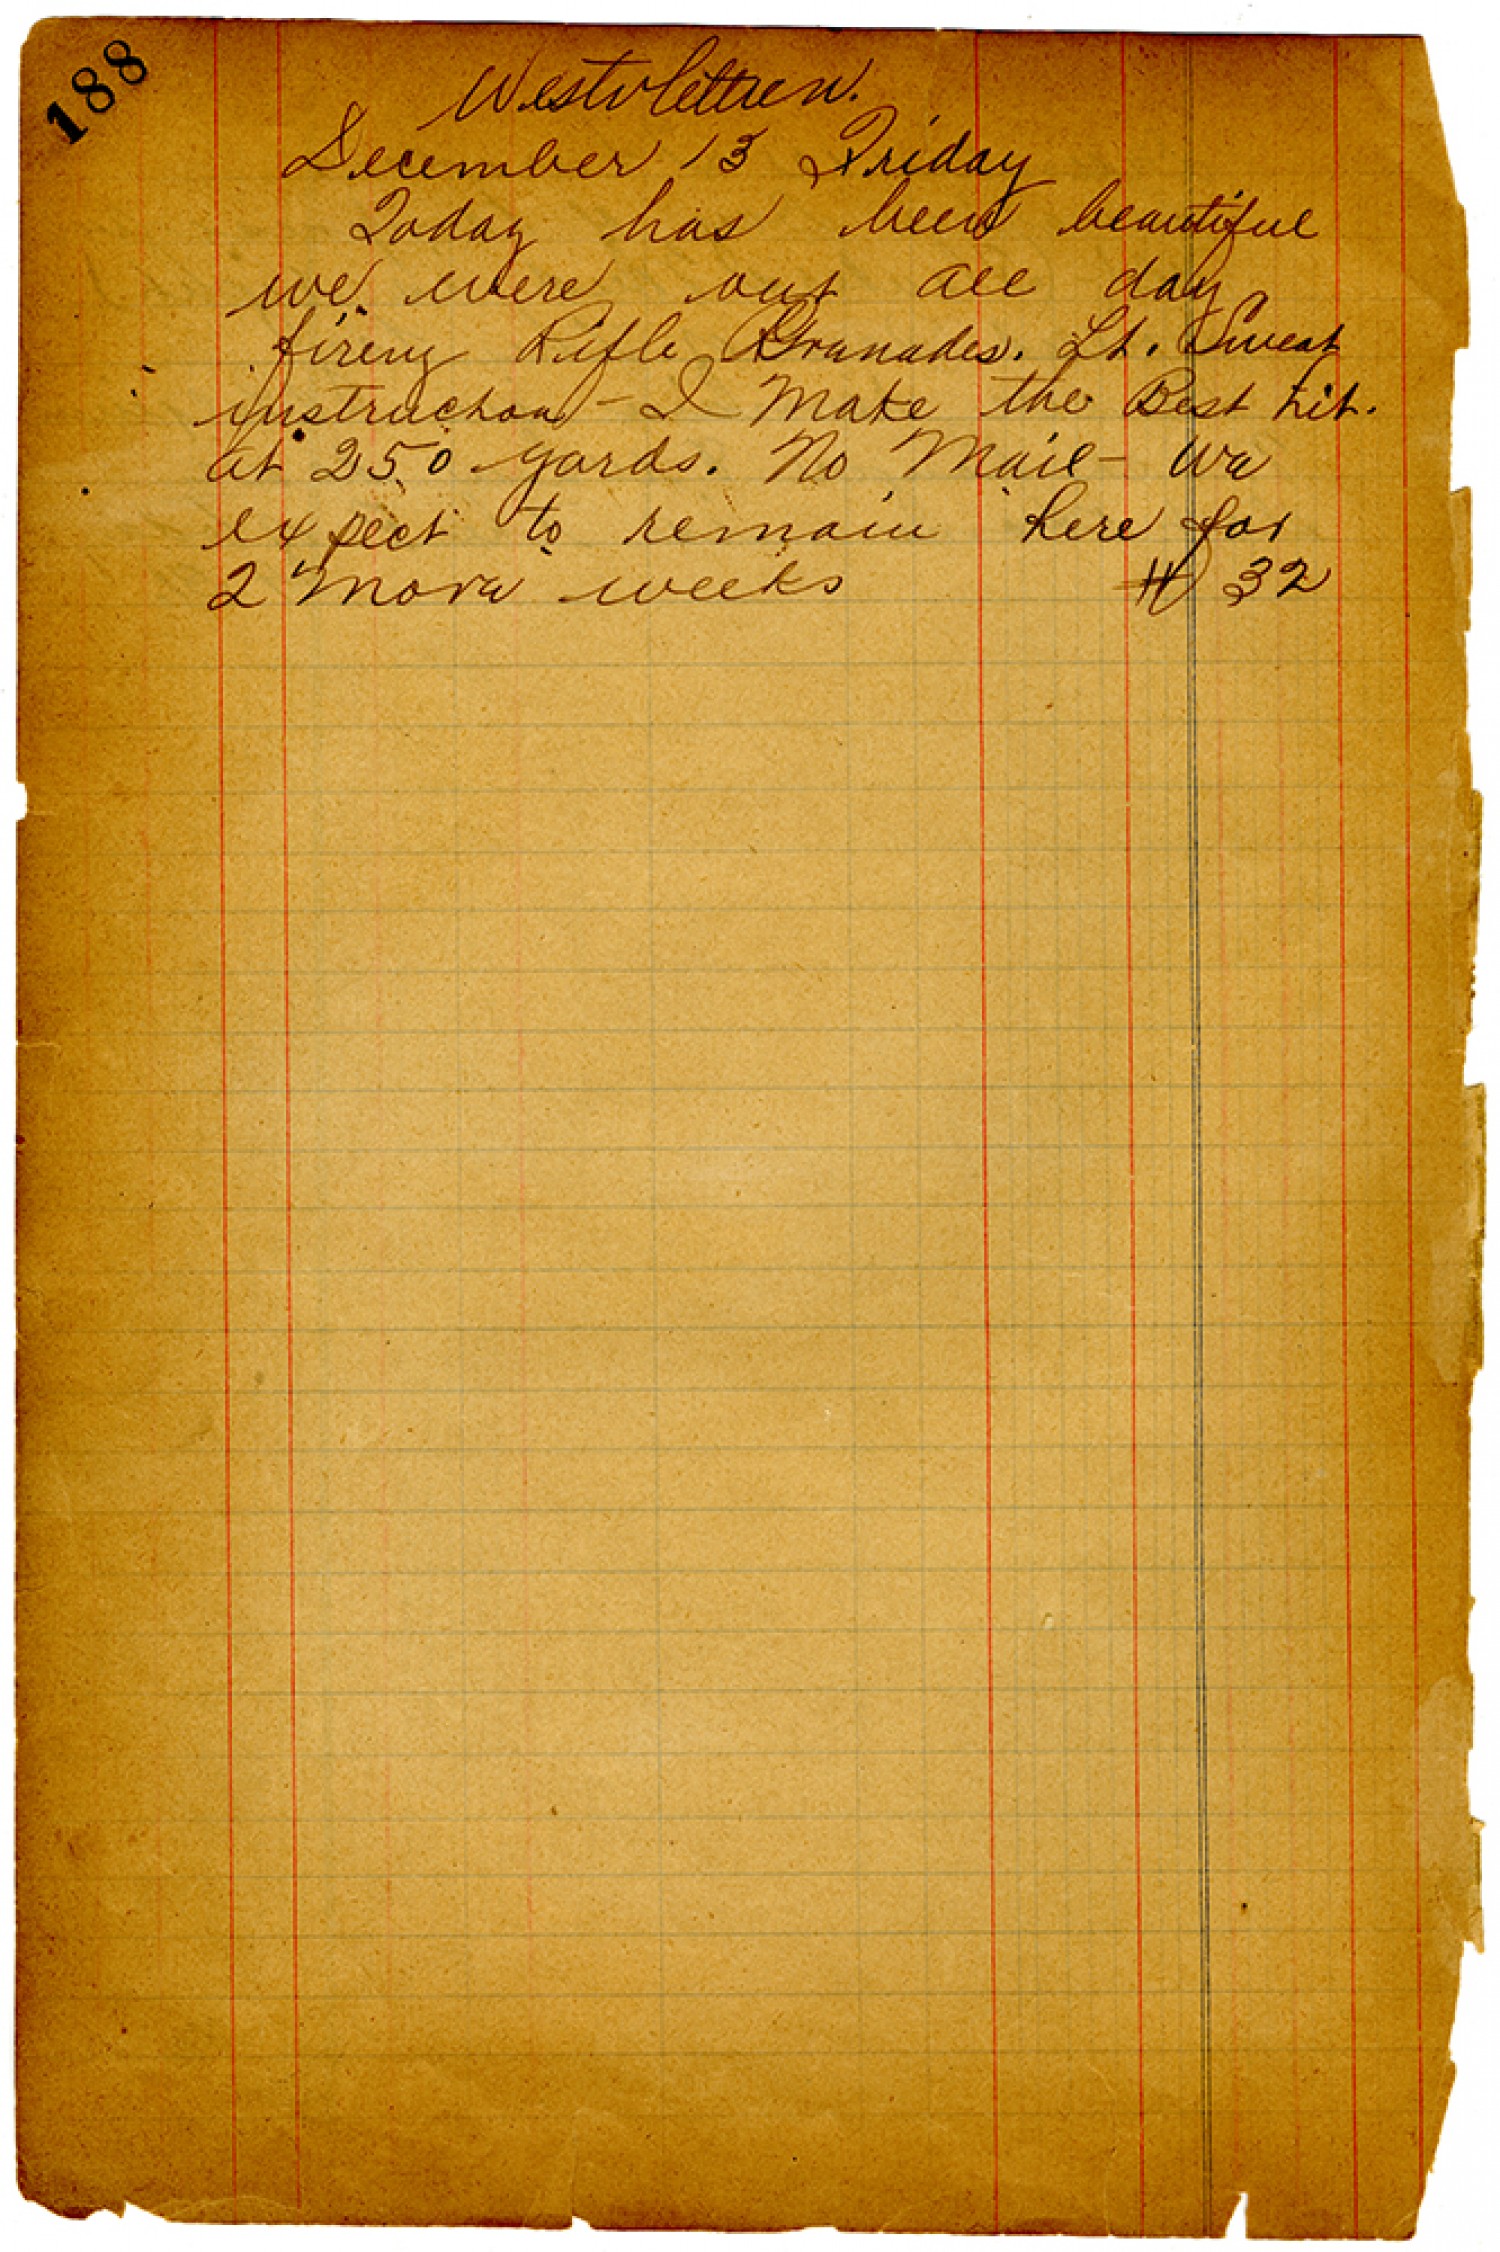 188
Westvlettren.
December 13 Friday
Today has been beautiful
we were out all day
firing Rifle Granades. Lt. Sweat
instruction - I Make the Best hit.
at 250 yards. No Mail - We
expect to remain here for
2 more weeks # 32